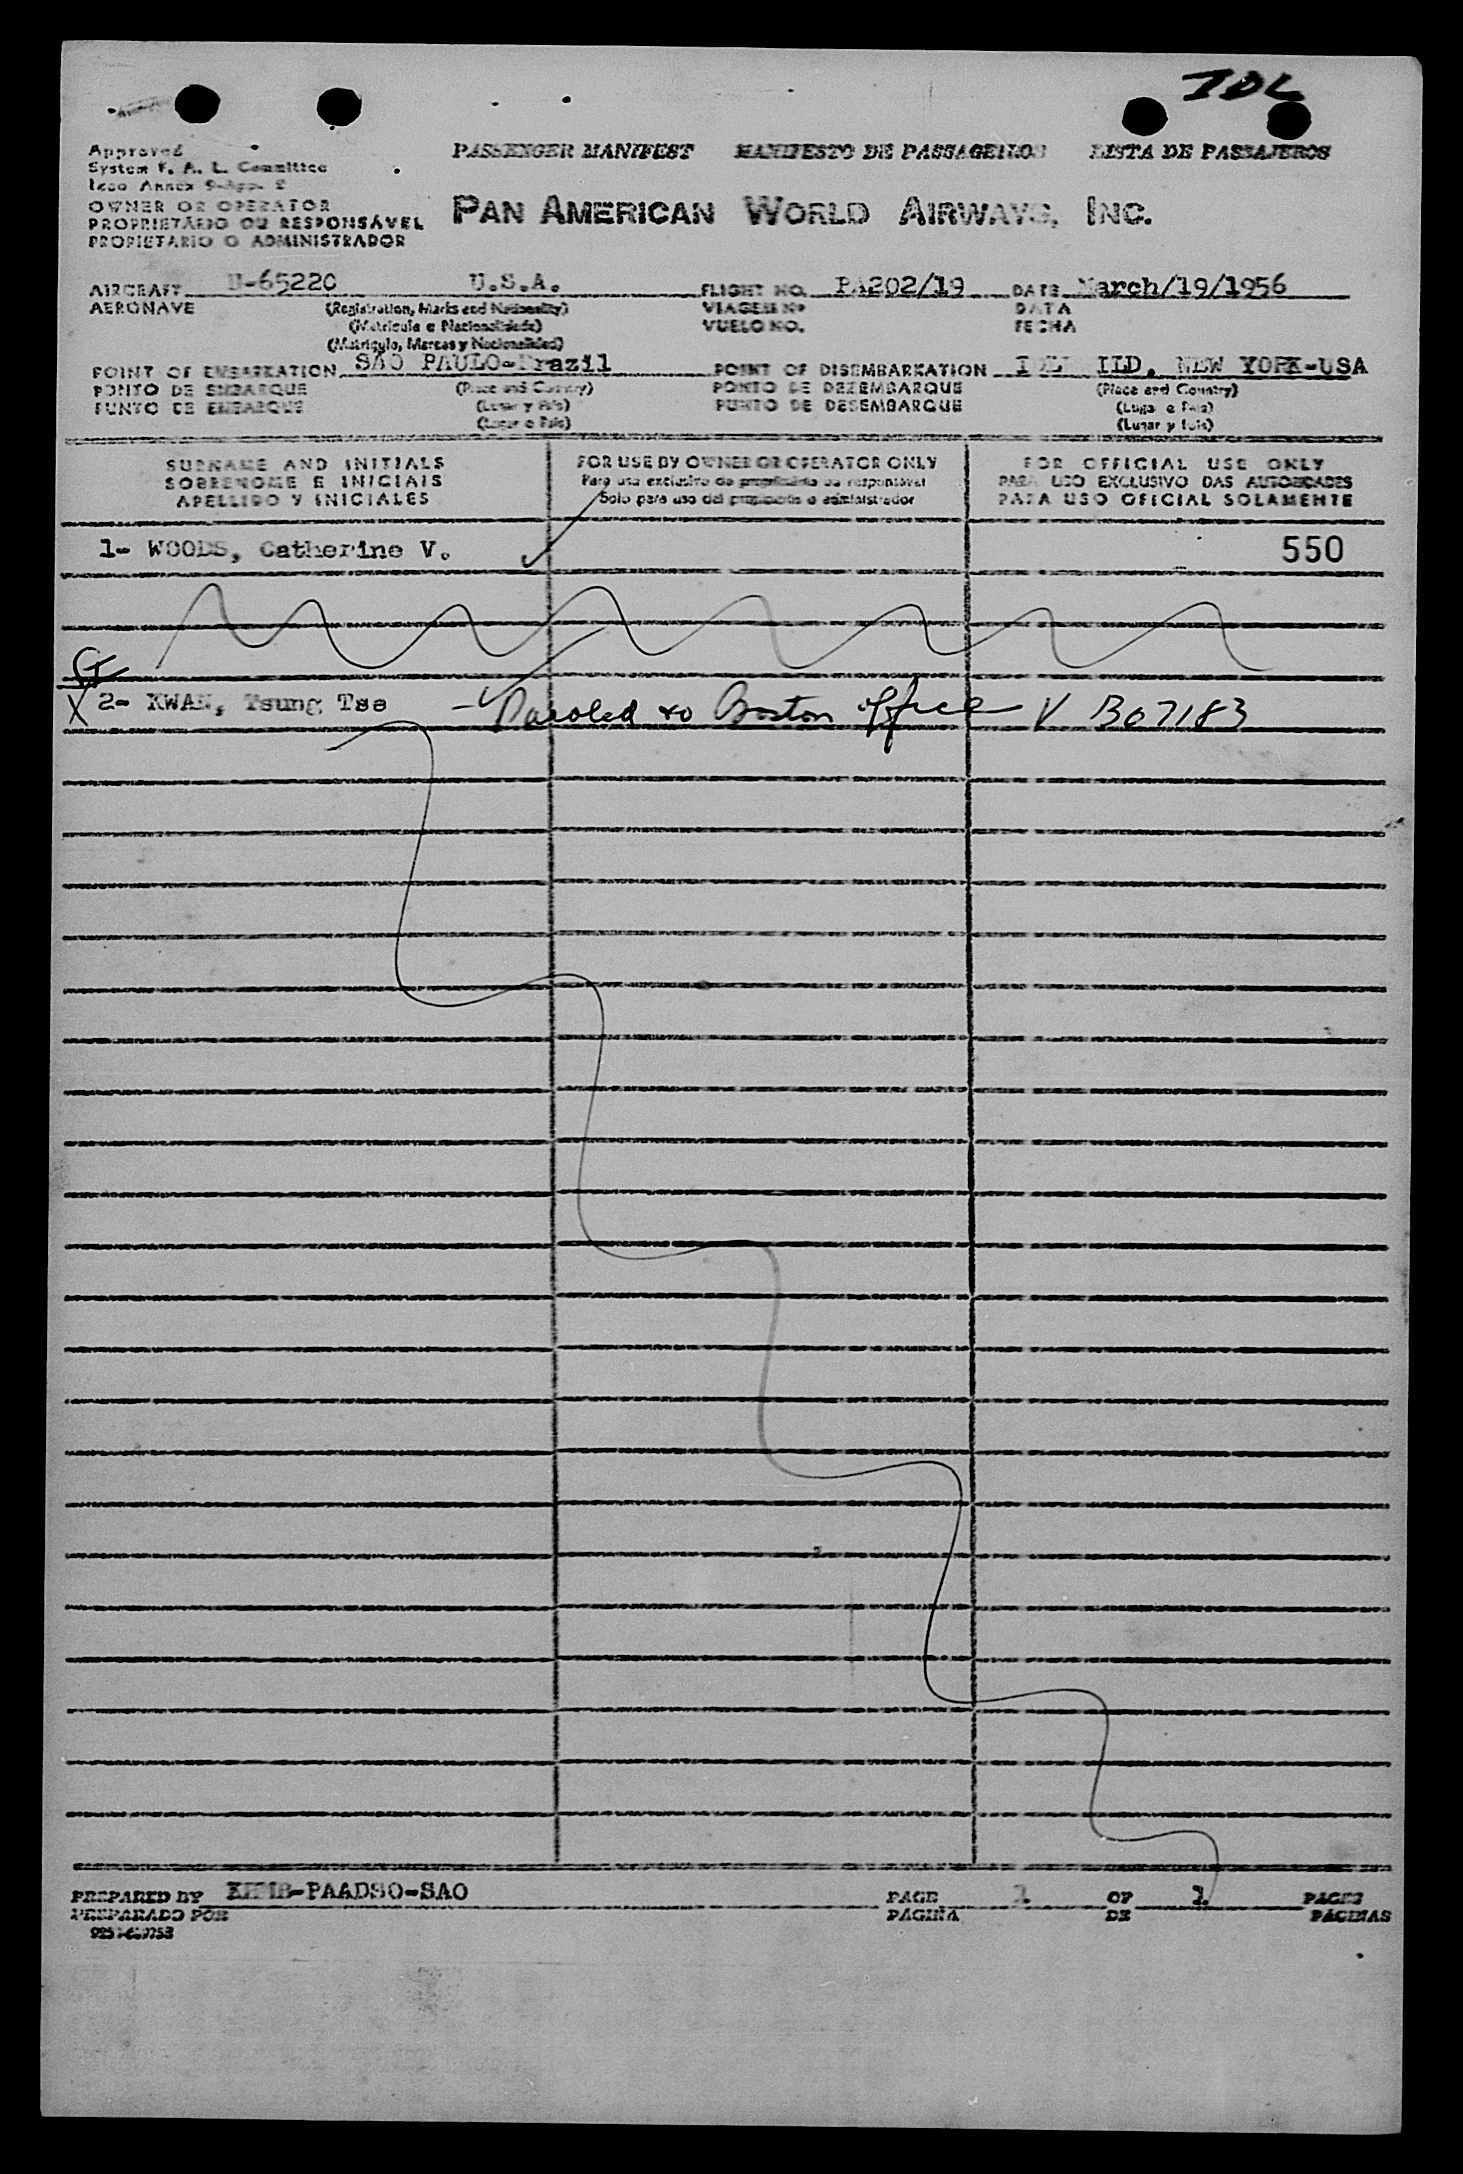 IDL
Approved
System F. A. L. Committee
Icao Annex 9-App. 2
OWNER OR OPERATOR
PROPRIETÁRIO OU RESPONSÁVEL
PROPIETARIO O ADMINISTRADOR
PASSENGER MANIFEST MANIFESTO DE PASSAGEIROS LISTA DE PASSAJEROS
PAN AMERICAN WORLD AIRWAYS, INC.
AIRCRAFT N-65220 U.S.A. FLIGHT NO. PA202/19 DATE March/19/1956
AERONAVE (Registration, Marks and Nationality) VIAGEM Nº DATA
(Matrícula e Nacionalidade) VUELO NO. FECHA
(Matrícula, Marcas y Nacionalidad)
POINT OF EMBARKATION SÃO PAULO-Brazil POINT OF DISEMBARKATION IDLEWILD. NEW YORK-USA
PONTO DE EMBARQUE (Place and Country) PONTO DE DEZEMBARQUE (Place and Country)
PUNTO DE EMBARQUE (Lugar y País) PUNTO DE DESEMBARQUE (Lugar e País)
(Lugar e País) (Lugar y País)
SURNAME AND INITIALS FOR USE BY OWNER OR OPERATOR ONLY FOR OFFICIAL USE ONLY
SOBRENOME E INICIAIS Para uso exclusivo do proprietário ou responsável PARA USO EXCLUSIVO DAS AUTORIDADES
APELLIDO Y INICIALES Solo para uso del propietario o administrador PARA USO OFICIAL SOLAMENTE
1- WOODS, Catherine V. 550
X 2- KWAN, Tsung Tse - Paroled to Boston office V B07183
PREPARED BY PAADSO-SAO PAGE 1 OF 1 PAGES
PREPARADO POR PAGINA DE PAGINAS